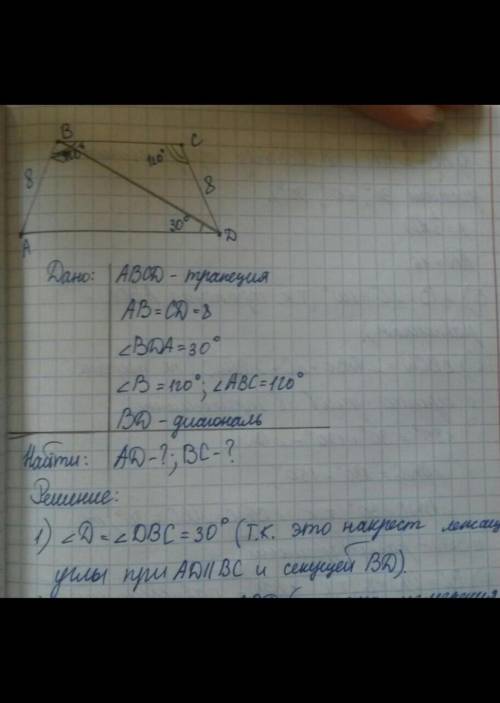 B
C
120°
120°
8
8
30°
A
D
Дано: ABCD - трапеция
AB = CD = 8
∠BDA = 30°
∠B = 120°; ∠ABC = 120°
BD - диагональ
Найти: AD - ?; BC - ?
Решение:
1) ∠D = ∠DBC = 30° (т.к. это накрест лежащ
углы при AD || BC и секущей BD).